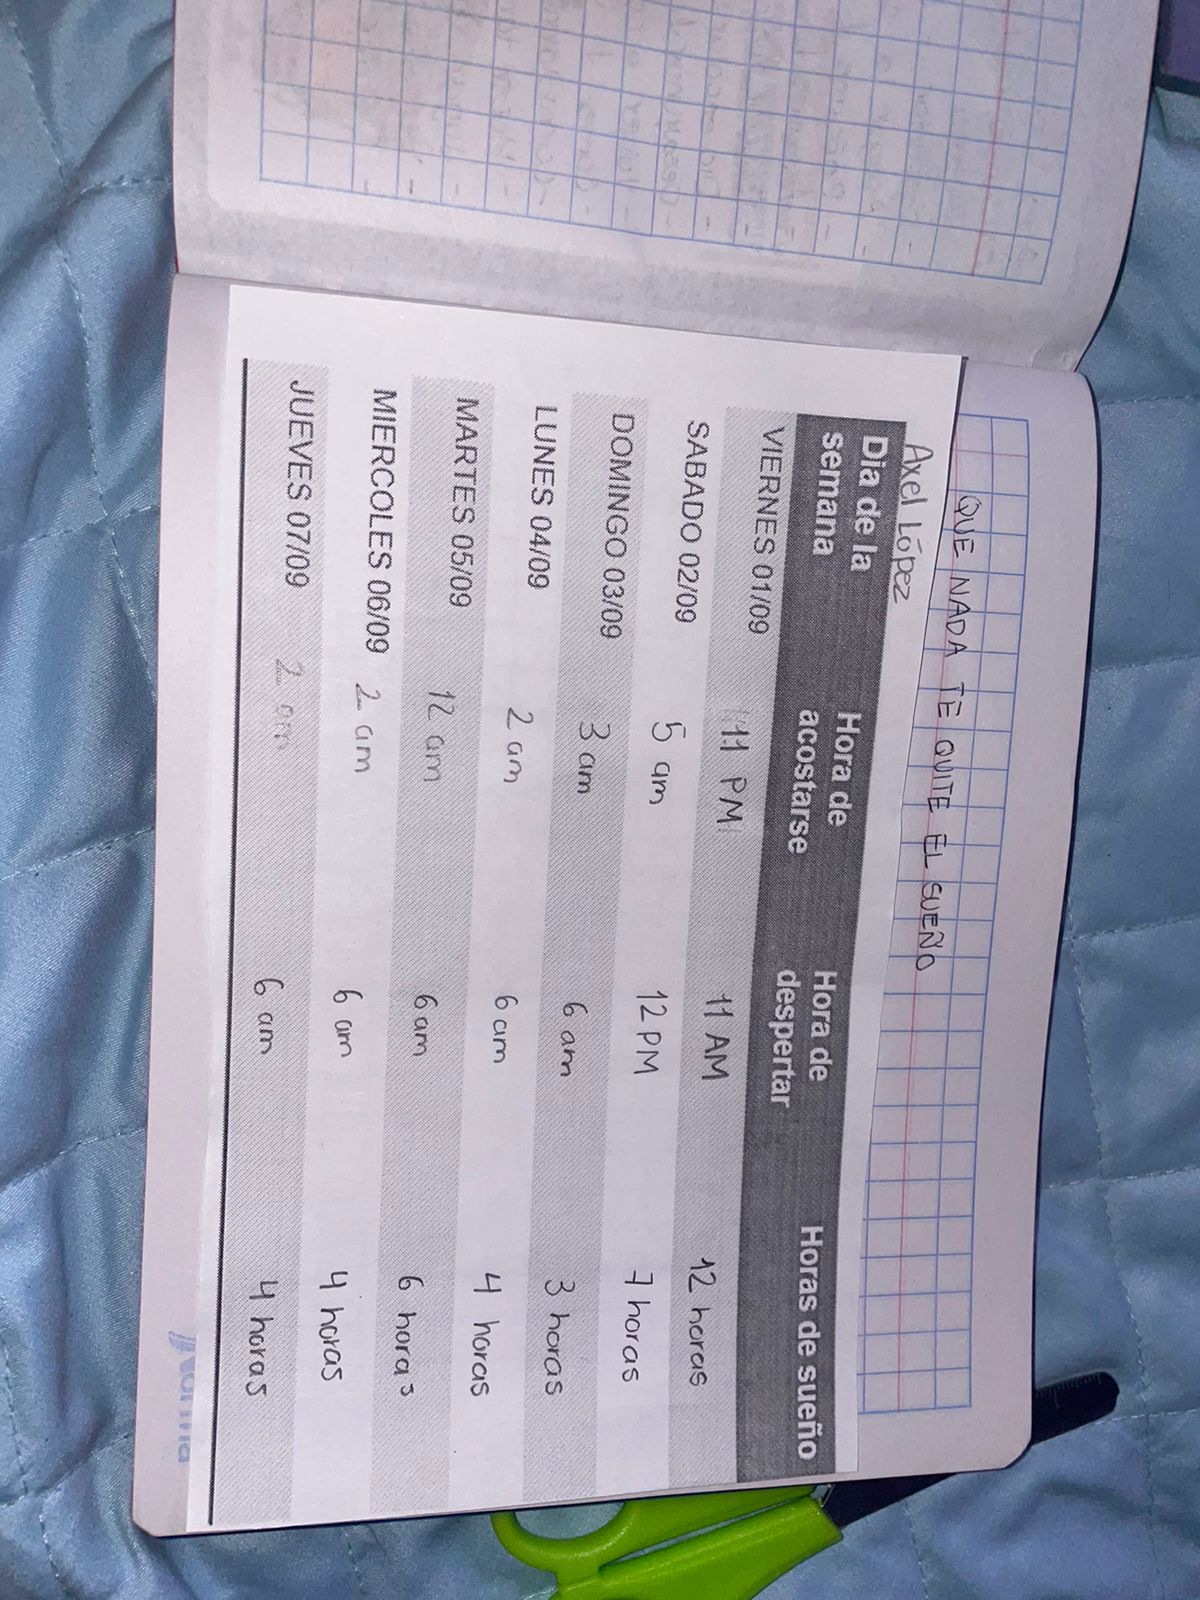 QUE NADA TE QUITE EL SUEÑO
Axel López
Dia de la semana Hora de acostarse Hora de despertar Horas de sueño
VIERNES 01/09 11 PM 11 AM 12 horas
SABADO 02/09 5 am 12 PM 7 horas
DOMINGO 03/09 3 am 6 am 3 horas
LUNES 04/09 2 am 6 am 4 horas
MARTES 05/09 12 am 6 am 6 horas
MIERCOLES 06/09 2 am 6 am 4 horas
JUEVES 07/09 2 am 6 am 4 horas